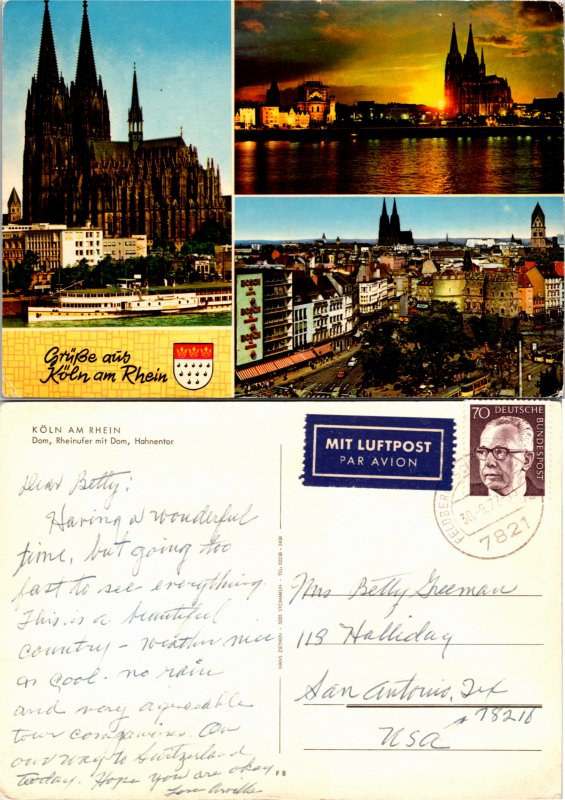 Grüße aus
Köln am Rhein
KÖLN AM RHEIN
Dom, Rheinufer mit Dom, Hahnentor
MIT LUFTPOST
PAR AVION
70 DEUTSCHE
BUNDESPOST
FELDBERG
30.-9.7
7821
Dear Betty:
Having a wonderful
time, but going too
fast to see everything.
This is a beautiful
country - weather nice
& cool. no rain
and very agreeable
tour companions. On
our way to Switzerland
today. Hope you are okay
Love
Mrs Betty Greeman
118 Halliday
San Antonio, Tex
78210
USA
HANS ZIETHEN
F 8